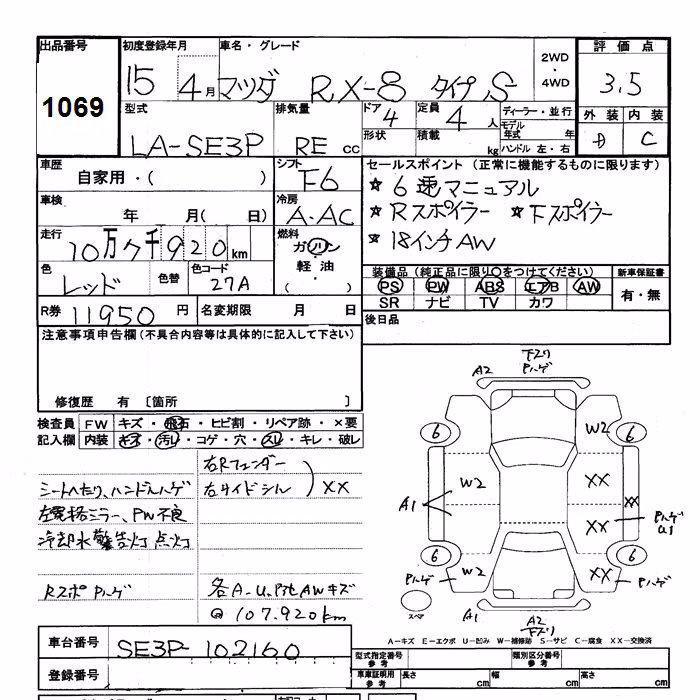 出品番号 初度登録年月 車名・グレード 2WD・4WD 評価点
1069 15 4月 マツダ RX-8 タイプS 3.5
型式 排気量 ドア 定員 ディーラー・並行 外装 内装
LA-SE3P RE cc 4 4人 モデル年式 年 D C
形状 積載 kg ハンドル 左・右
車歴 シフト セールスポイント(正常に機能するものに限ります)
自家用・( ) F6 ☆6速マニュアル
車検 冷房 ☆Rスポイラー ☆Fスポイラー
年 月( 日) A・AC ☆18インチAW
走行 燃料
10万7千920km ガソリン
軽油
( )
色 色替 色コード 装備品(純正品に限り○をつけてください) 新車保証書
レッド 27A PS PW ABS エアB AW 有・無
SR ナビ TV カワ
R券 11950円 名変期限 月 日 後日品
注意事項申告欄(不具合内容等は具体的に記入して下さい)
修復歴 有〔箇所 〕
検査員 FW キズ・飛石・ヒビ割・リペア跡・×要
記入欄 内装 キズ・汚レ・コゲ・穴・スレ・キレ・破レ
右Rフェンダー
シートへたり、ハンドルハゲ 右サイドシル ) XX
左電格ミラー、PW不良
冷却水警告灯点灯
Rスポ Pハゲ 各A-U,P他AWキズ
@107,920km
下スリ
A2 Pハゲ
6 W2 6
W2 XX
A1 XX
XX Pハゲ U1
6 6
Pハゲ W2 XX Pハゲ
スペア A1 A2
下スリ
A-キズ E-エクボ U-凹み W-補修跡 S-サビ C-腐食 XX-交換済
車台番号 SE3P-102160
型式指定番号 参考 類別区分番号 参考
登録番号
車庫証明用 参考 長さ cm 幅 cm 高さ cm